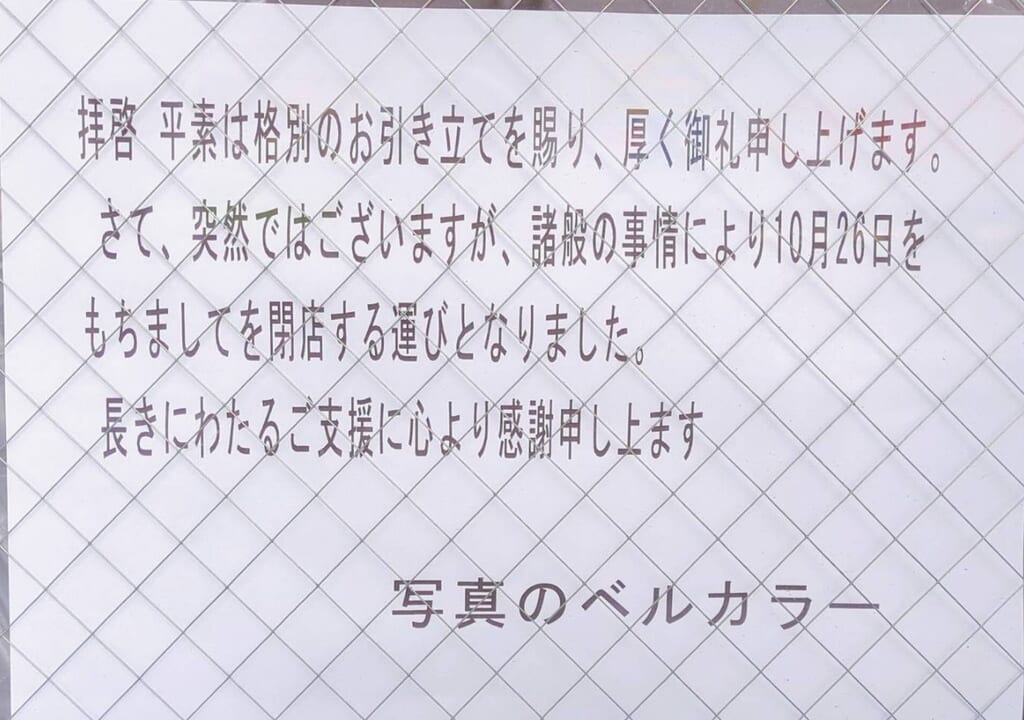 拝啓 平素は格別のお引き立てを賜り、厚く御礼申し上げます。
さて、突然ではございますが、諸般の事情により10月26日を
もちましてを閉店する運びとなりました。
長きにわたるご支援に心より感謝申し上ます
写真のベルカラー